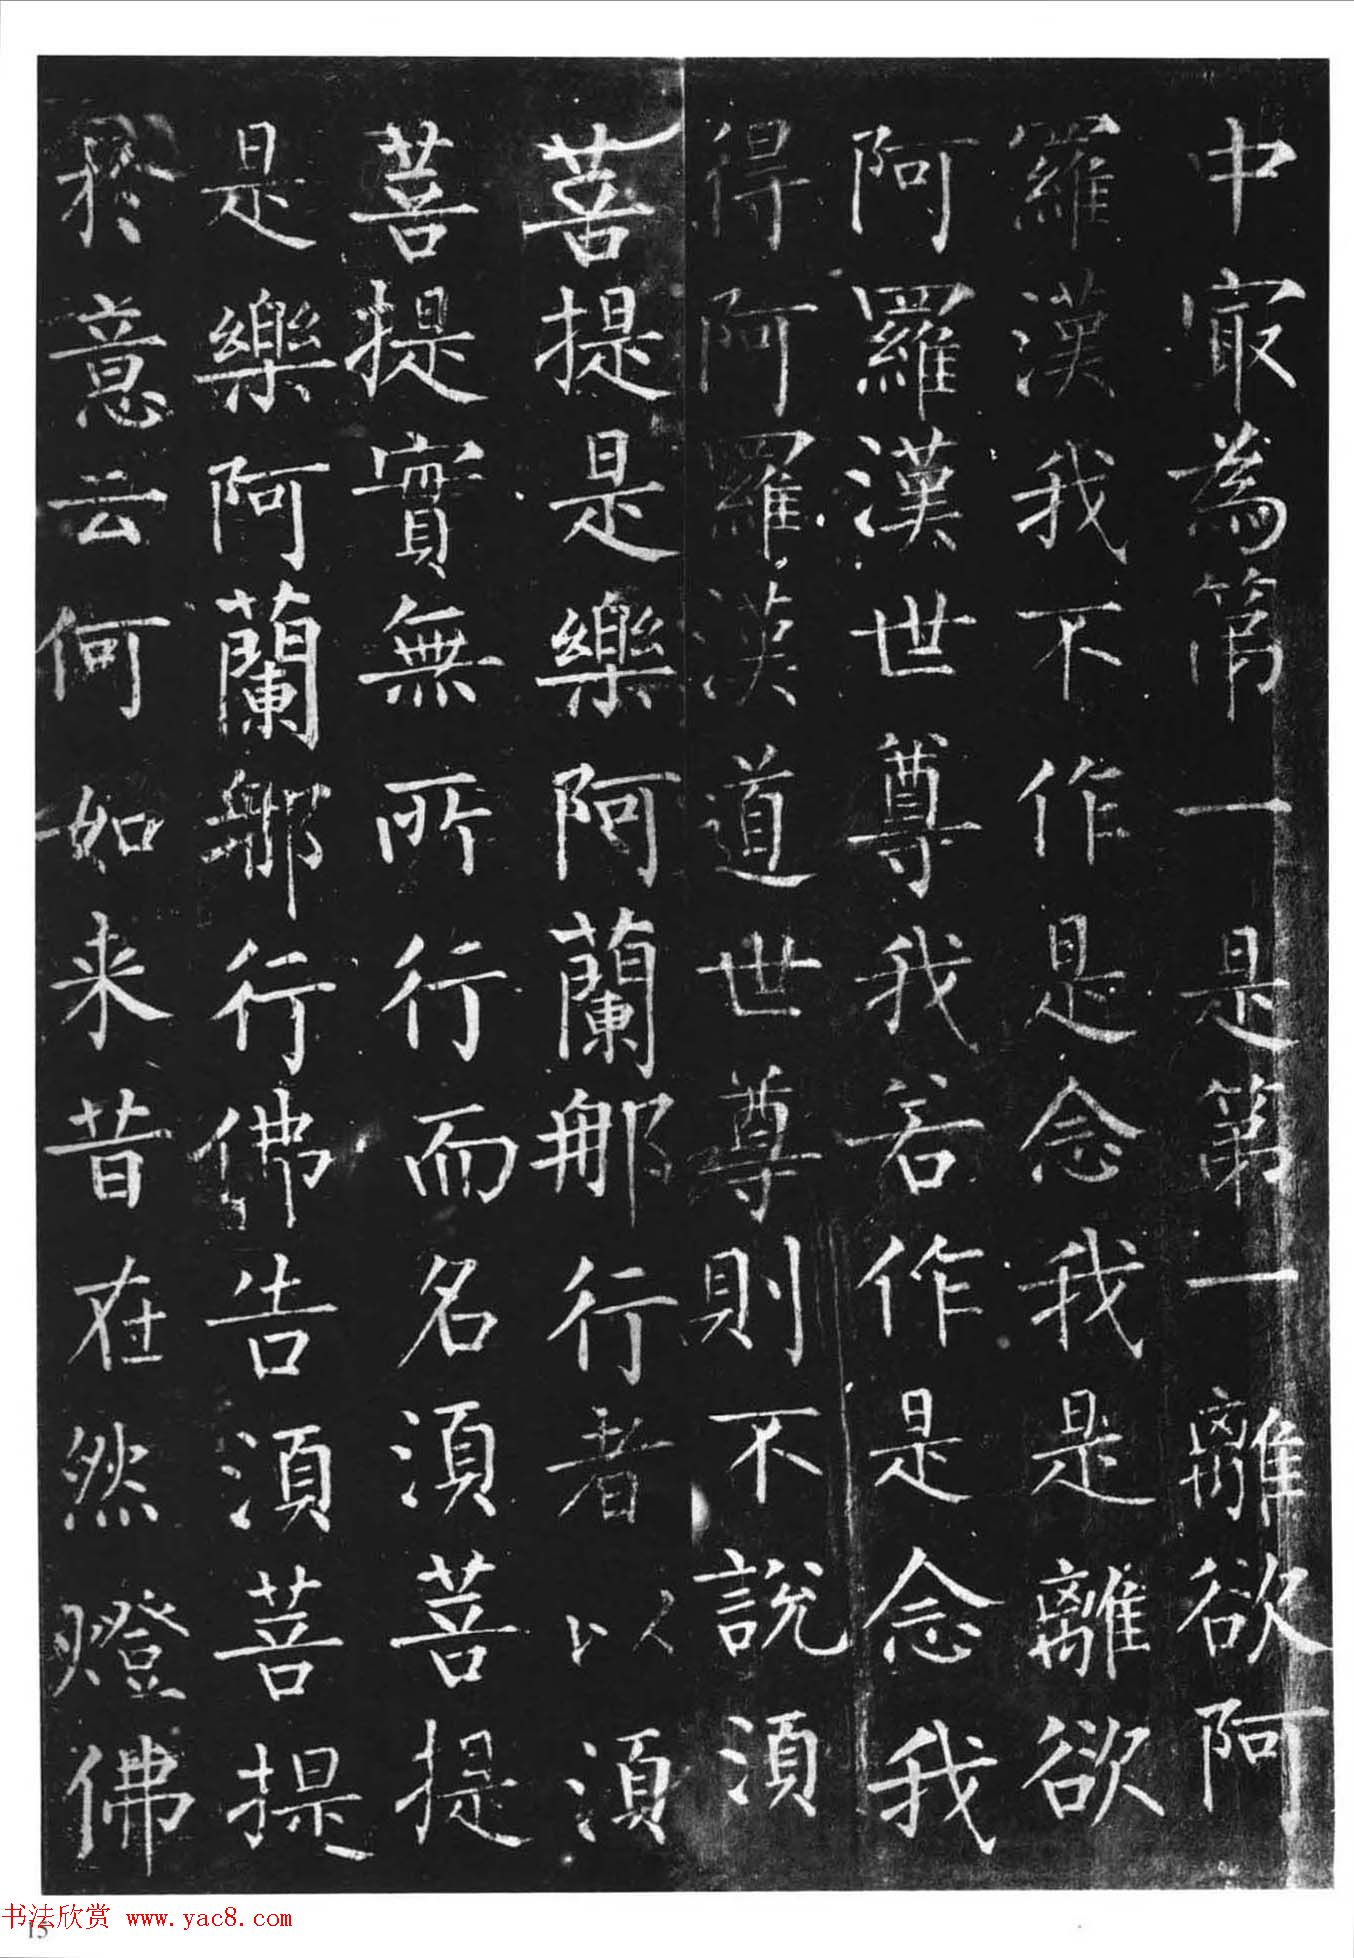 中冣為第一是第一離欲阿
羅漢我不作是念我是離欲
阿羅漢世尊我若作是念我
得阿羅漢道世尊則不說湏
菩提是樂阿蘭那行者以湏
菩提實無所行而名湏菩提
是樂阿蘭那行佛告湏菩提
於意云何如来昔在然燈佛
书法欣赏 www.yac8.com
15